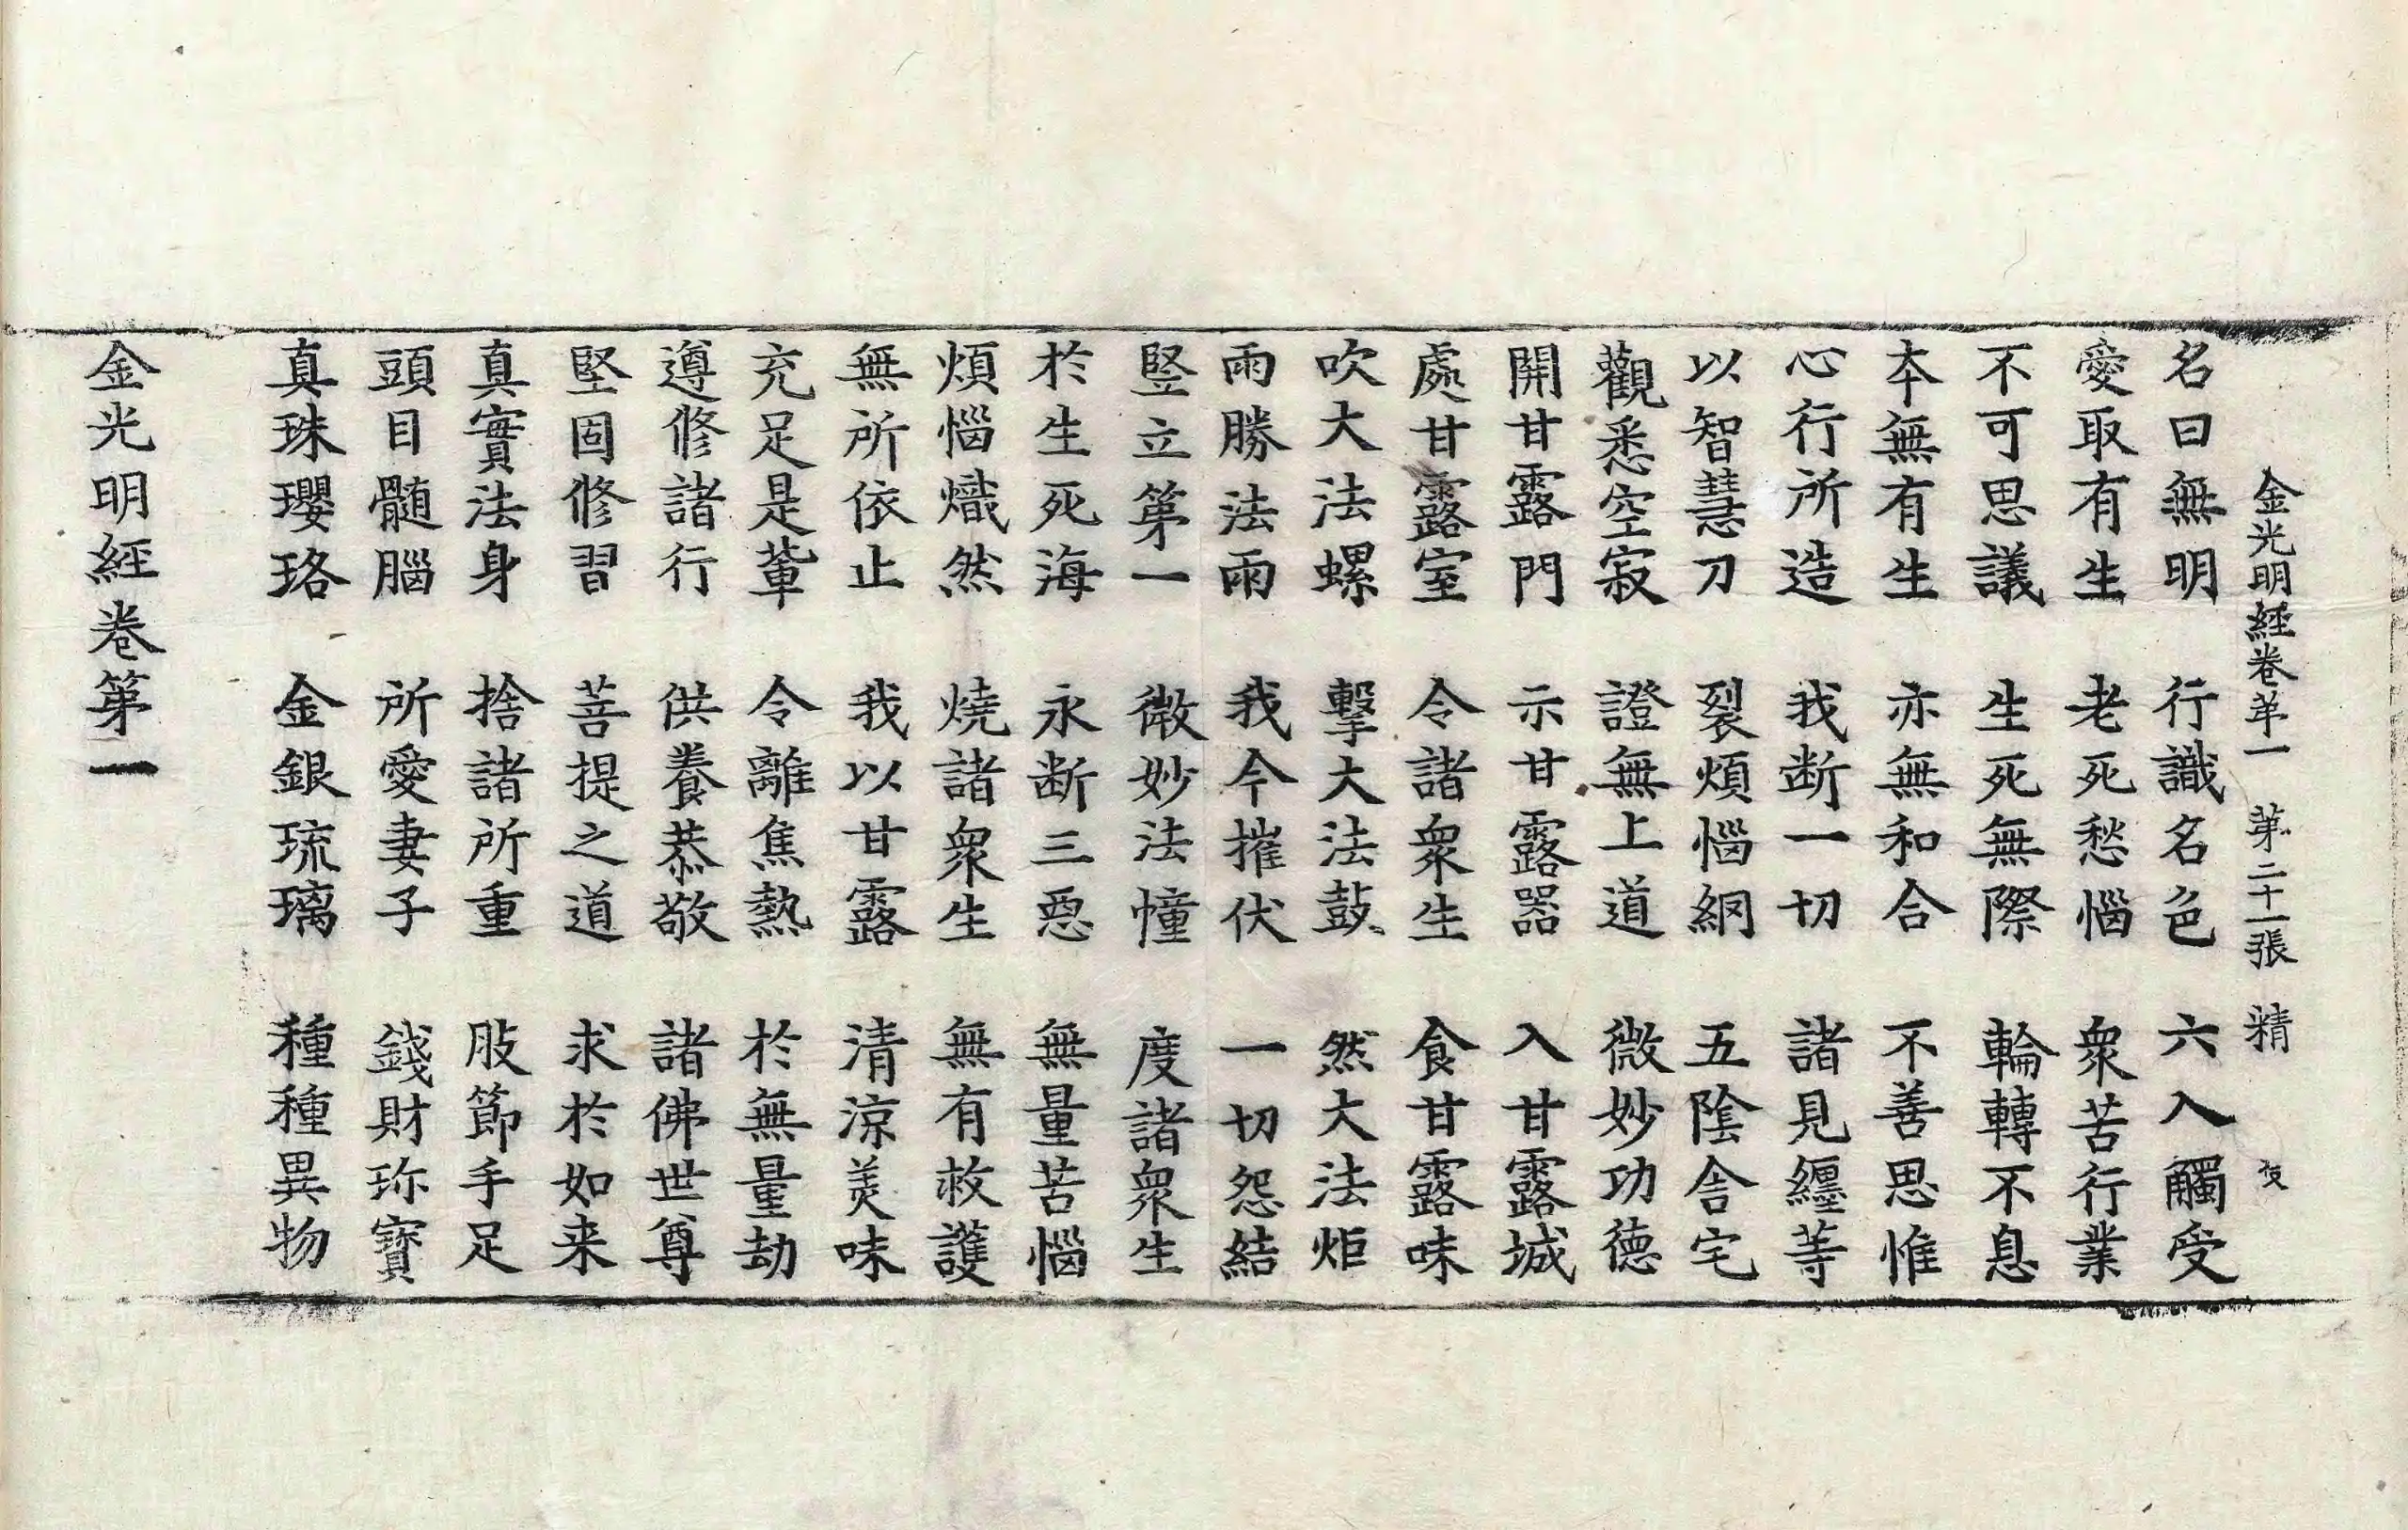 金光明經卷苐一 苐二十一張 精
名曰無明 行識名色 六入觸受
愛取有生 老死愁惱 衆苦行業
不可思議 生死無際 輪轉不息
本無有生 亦無和合 不善思惟
心行所造 我断一切 諸見纏等
以智慧刀 裂煩惱網 五陰舎宅
觀悉空寂 證無上道 微妙功德
開甘露門 示甘露器 入甘露城
處甘露室 令諸衆生 食甘露味
吹大法螺 擊大法鼓 然大法炬
雨勝法雨 我今摧伏 一切怨結
竪立第一 微妙法幢 度諸衆生
於生死海 永断三惡 無量苦惱
煩惱熾然 燒諸衆生 無有救護
無所依止 我以甘露 清涼美味
充足是軰 令離焦熱 於無量劫
遵修諸行 供養恭敬 諸佛世尊
堅固修習 菩提之道 求於如来
真實法身 捨諸所重 肢節手足
頭目髓腦 所愛妻子 錢財珎寶
真珠瓔珞 金銀琉璃 種種異物
金光明經卷第一